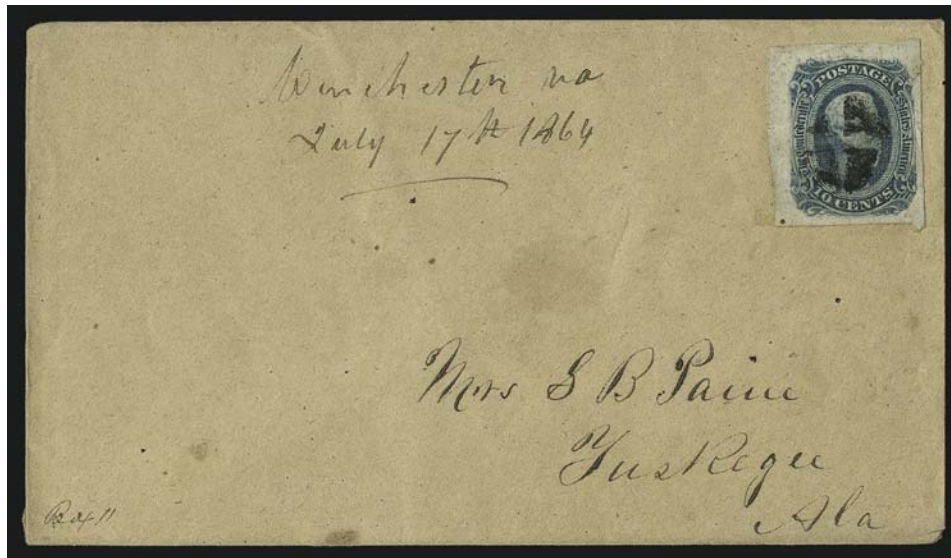 Winchester va
July 17th 1864
POSTAGE
The Confederate States America
10 CENTS
Mrs S B Paine
Tuskegee
Ala
Box 11